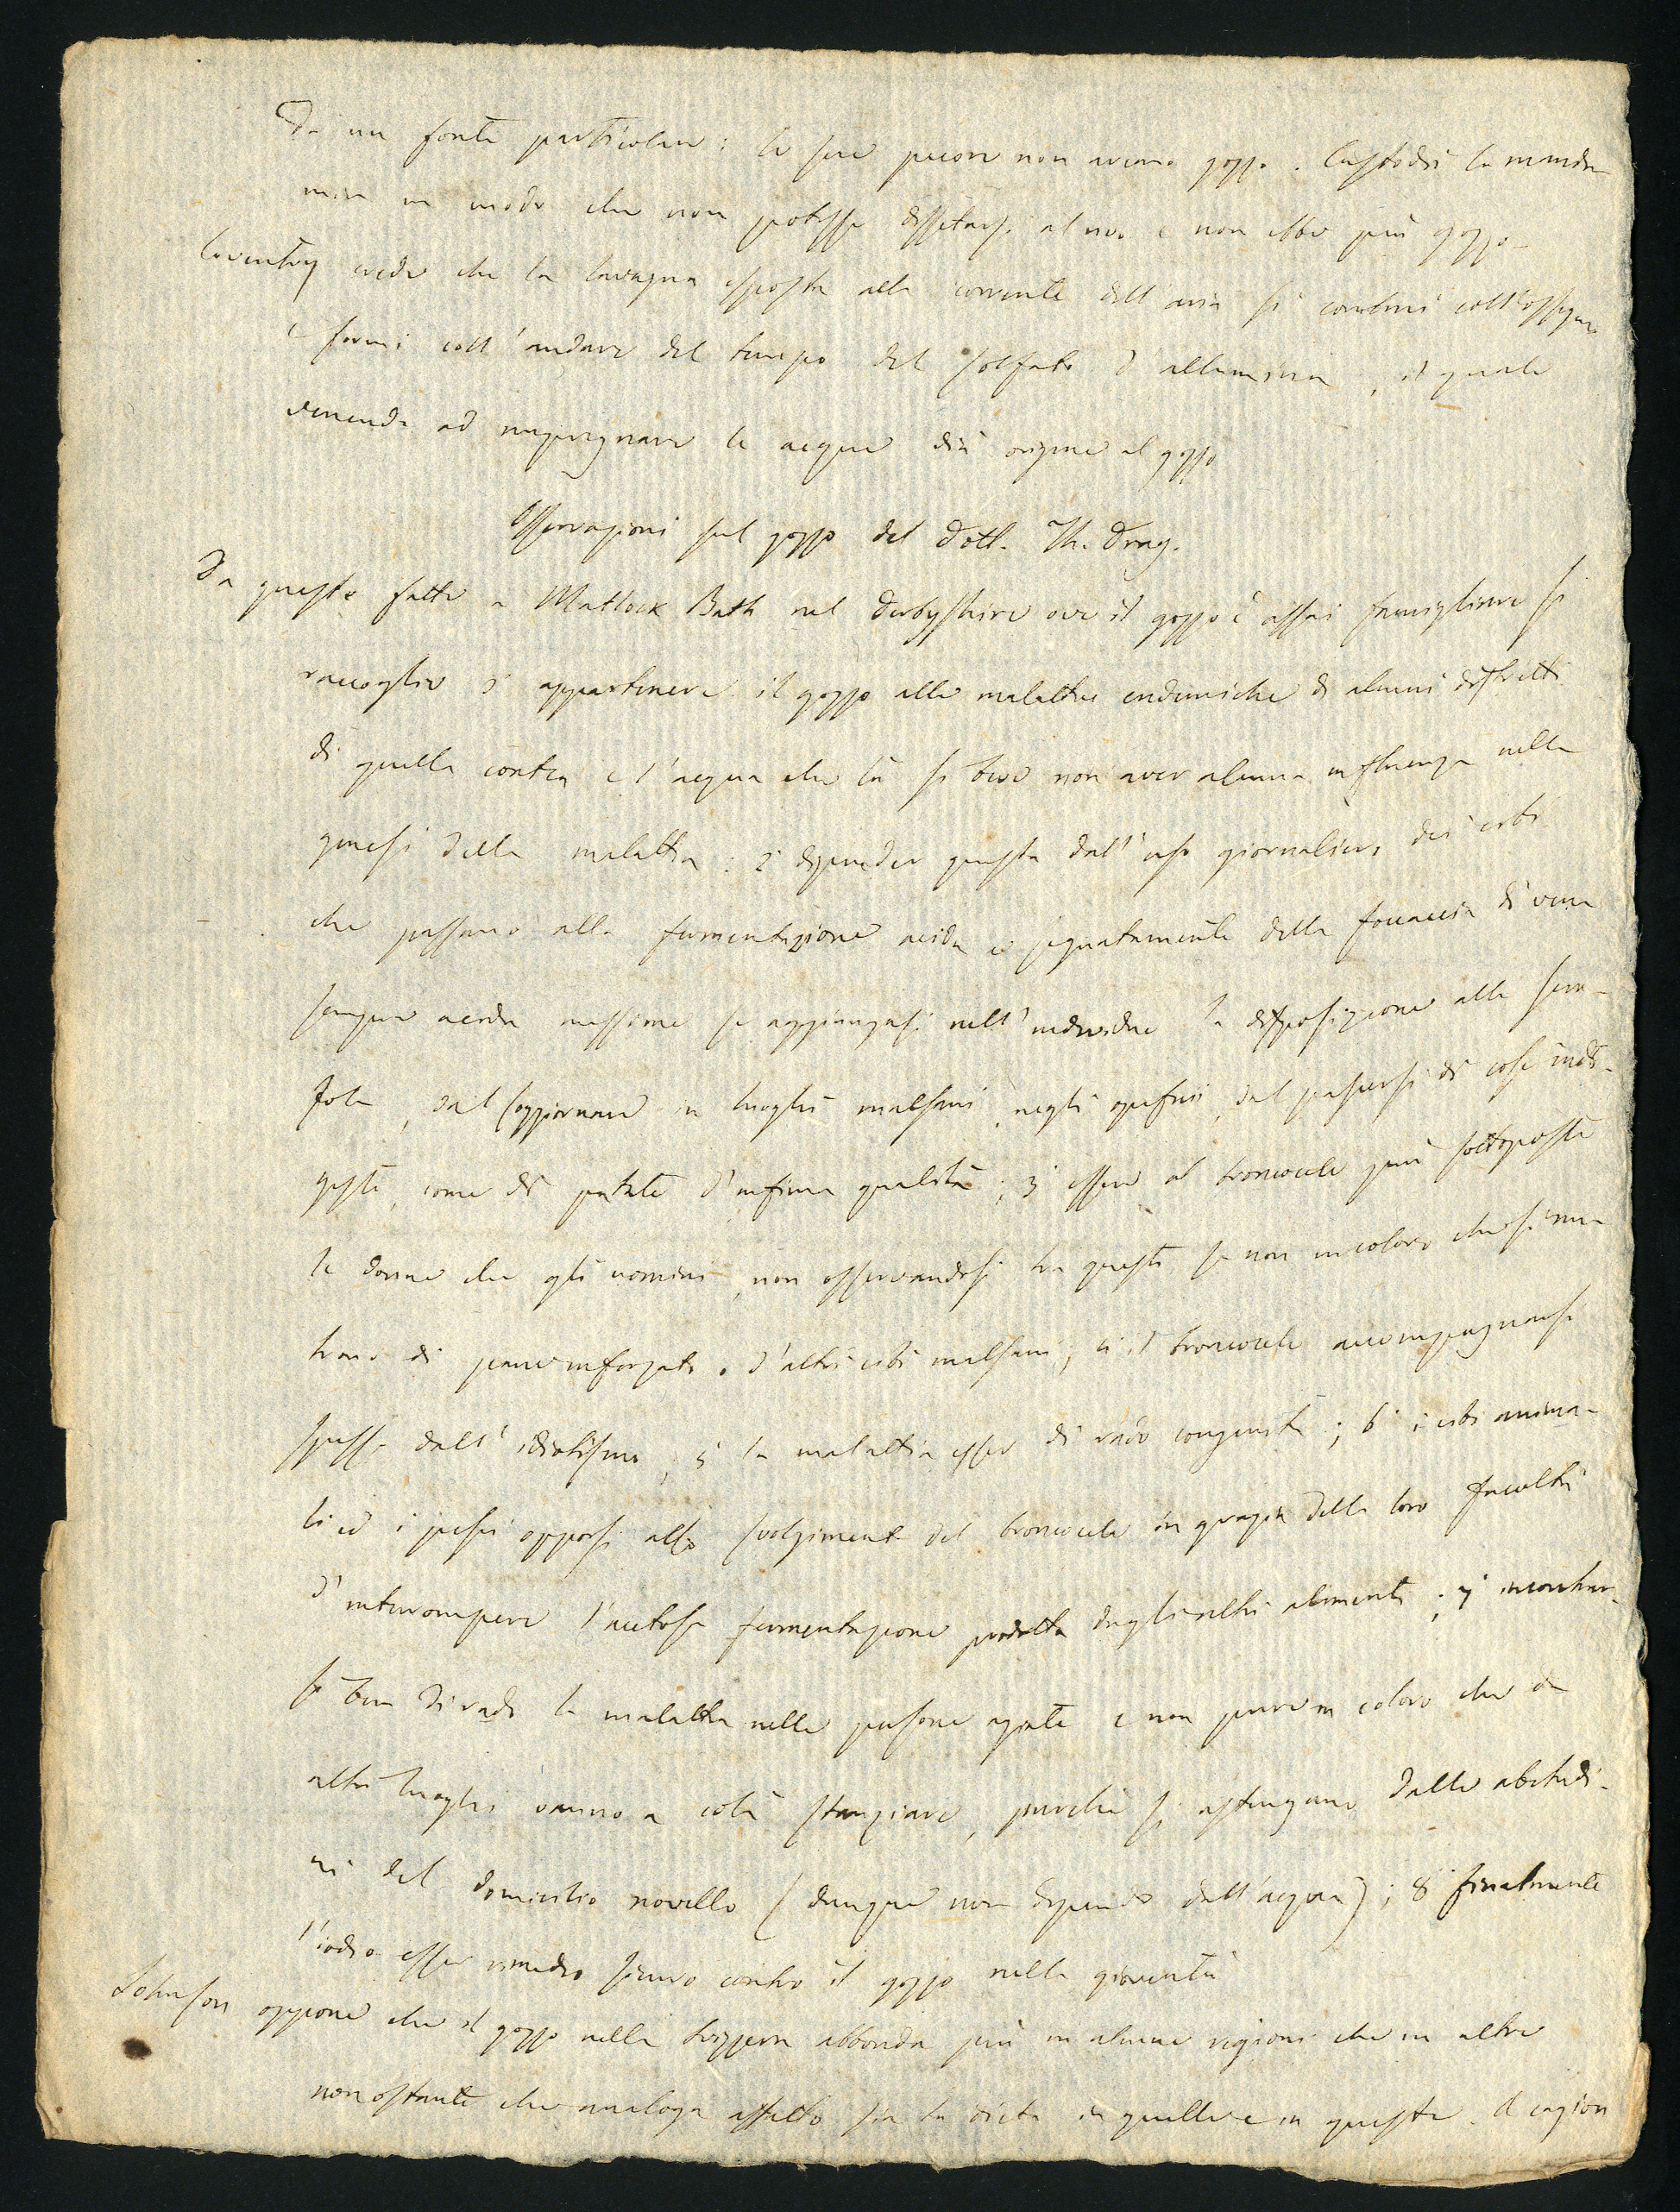 Da un fonte particolare: le sue pecore non aveano gozzo. Custodì la mandra
mia in modo che non potesse dissetarsi al rivo e non ebbe più gozzo -
Coventry crede che la lavagna esposta alla corrente dell'aria si combini coll'ossigeno
e formi coll'andare del tempo del solfato d'allumina, il quale
venendo ad impregnare le acque dia origine al gozzo
Osservazioni sul gozzo del Dott. Th.
Da queste fatte a Matlock Bath nel Derbyshire ove il gozzo è assai famigliare si
raccoglie 1 appartenere il gozzo alle malattie endemiche di alcuni distretti
di quella contea e l'acqua che là si beve non aver alcuna influenza nella
genesi della malattia: 2 dipender questa dall'uso giornaliero dei cibi
che passano alla fermentazione acida e segnatamente della focaccia di vena
sempre acida massime se aggiungasi nell'individuo la disposizione alla scro-
fola, dal soggiornare in luoghi malsani, negli opifici, dal pascersi di cose indi-
geste, come di patate d'infima qualità; 3 essere al broncocele più sottoposte
le donne che gli uomini, non osservandosi tra questi se non in coloro che si nu-
trono di pane inforzato o d'altri cibi malsani; 4 il broncocele accompagnarsi
spesso dall'idiotismo; 5 la malattia esser di rado congenita; 6 i cibi anima-
li ed i pesci opporsi allo svolgimento del broncocele in grazia della loro facoltà
d'interrompere l'acetosa fermentazione prodotta dagli altri alimenti; 7 incontrar-
si ben di rado la malattia nelle persone agiate e non pure in coloro che da
altri luoghi vanno a colà stanziare, purché si astengano dalle abitudi-
ni del domicilio novello (dunque non dipende dall'acqua); 8 finalmente
l'iodio esser rimedio sicuro contro il gozzo nella gioventù
Johnson oppone che il gozzo nella Svizzera abbonda più in alcune regioni che in altre
non ostante che analoga affatto sia la dieta in quelle e in queste. A cagion